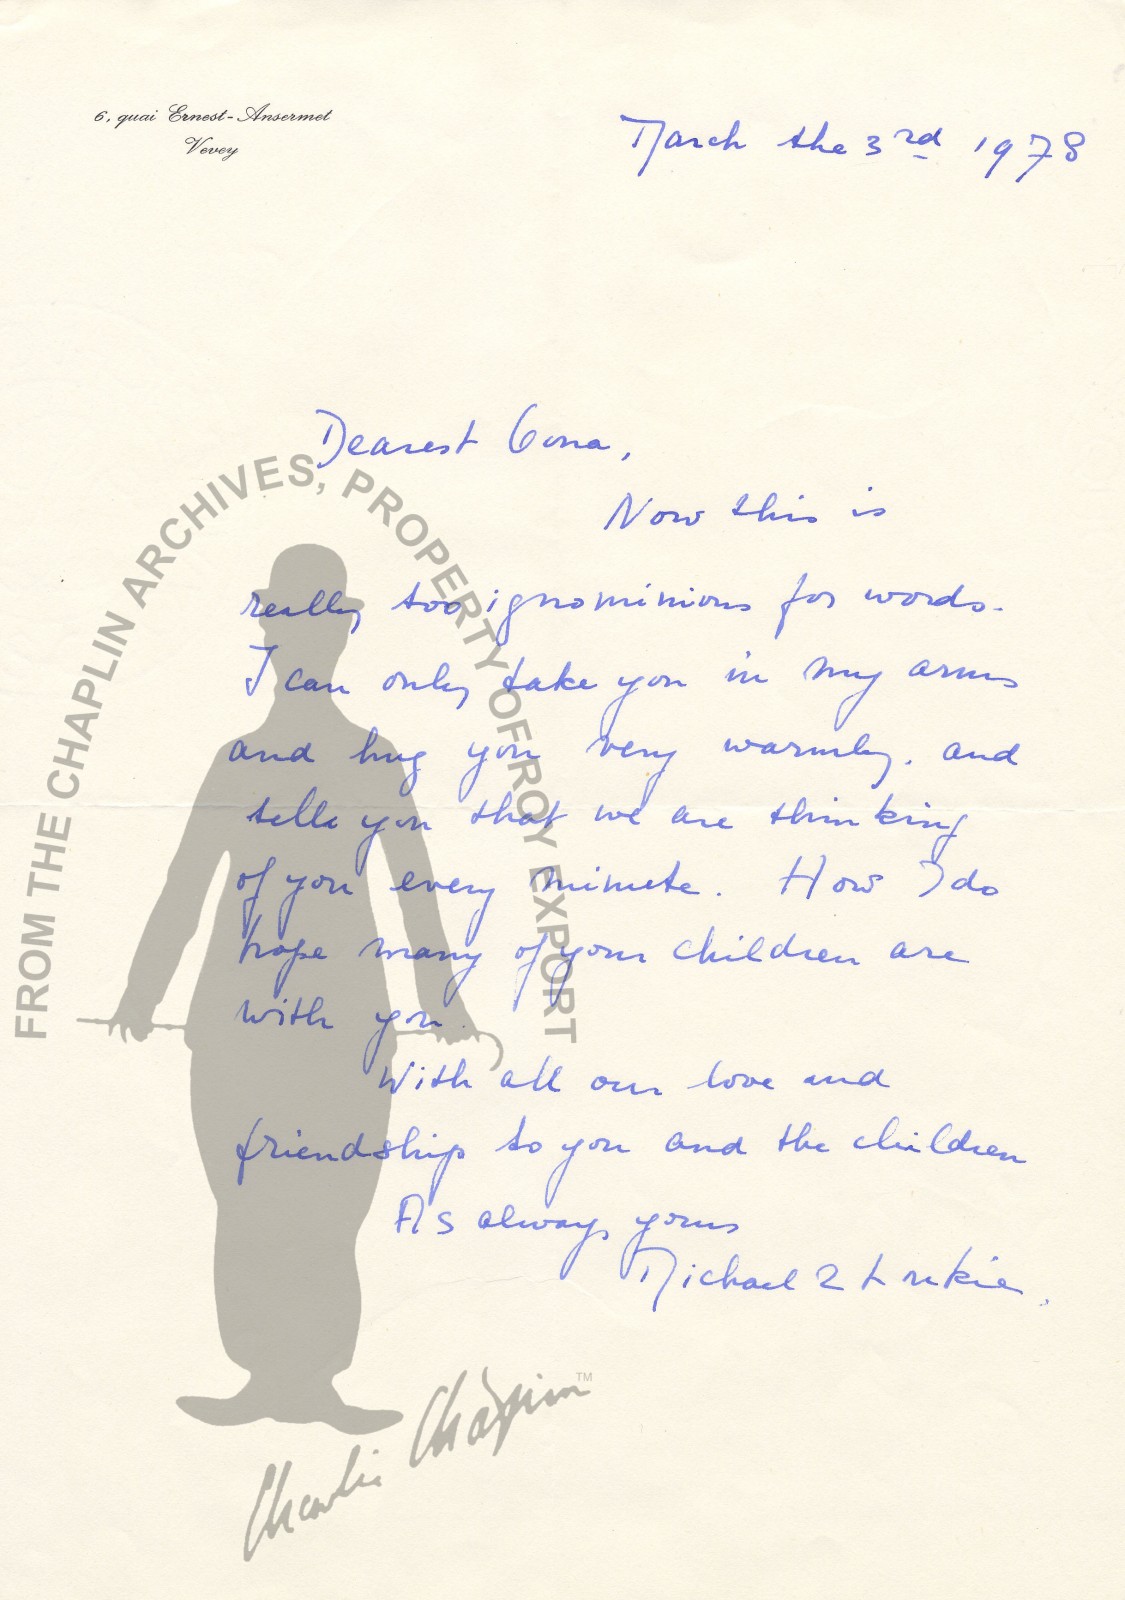 6, quai Ernest-Ansermet
Vevey
March the 3rd 1978
Dearest Oona,
Now this is
really too ignominious for words.
I can only take you in my arms
and hug you very warmly, and
tell you that we are thinking
of you every minute. How I do
hope many of your children are
with you.
With all our love and
friendship to you and the children
As always yours
Michael &
FROM THE CHAPLIN ARCHIVES, PROPERTY OF ROY EXPORT
Charlie Chaplin TM